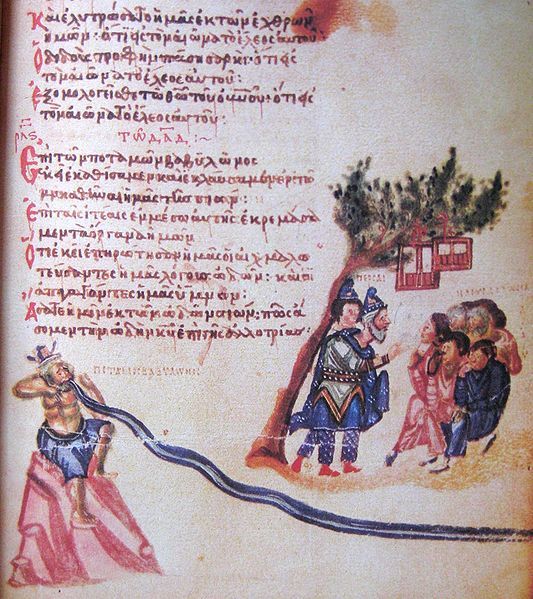 Καὶ ἐλυτρώσατο ἡμᾶς ἐκ τῶν ἐχθρῶν
ἡμῶν: ὅτι εἰς τὸν αἰῶνα τὸ ἔλεος αὐτοῦ:
Ὁ διδοὺς τροφὴν πάσῃ σαρκί: ὅτι εἰς
τὸν αἰῶνα τὸ ἔλεος αὐτοῦ:
Ἐξομολογεῖσθε τῷ θῶ τοῦ οὐνοῦ: ὅτι εἰς
τὸν αἰῶνα τὸ ἔλεος αὐτοῦ:
τῶ δαδ
Ἐπὶ τῶν ποταμῶν βαβυλῶνος
ἐκεῖ ἐκαθίσαμεν καὶ ἐκλαύσαμεν ἐν τῷ
μνησθῆναι ἡμᾶς τῆς σιών:
Ἐπὶ ταῖς ἰτέαις ἐν μέσῳ αὐτῆς ἐκρεμάσα
μεν τὰ ὄργανα ἡμῶν
Ὅτι ἐκεῖ ἐπηρώτησαν ἡμᾶς οἱ αἰχμαλω
τεύσαντες ἡμᾶς λόγους ᾠδῶν: καὶ οἱ
ἀπαγαγόντες ἡμᾶς ὕμνον:
Ἄσατε ἡμῖν ἐκ τῶν ᾠδῶν σιών: πῶς ᾄ
σωμεν τὴν ᾠδὴν κυ ἐπὶ γῆς ἀλλοτρίας: